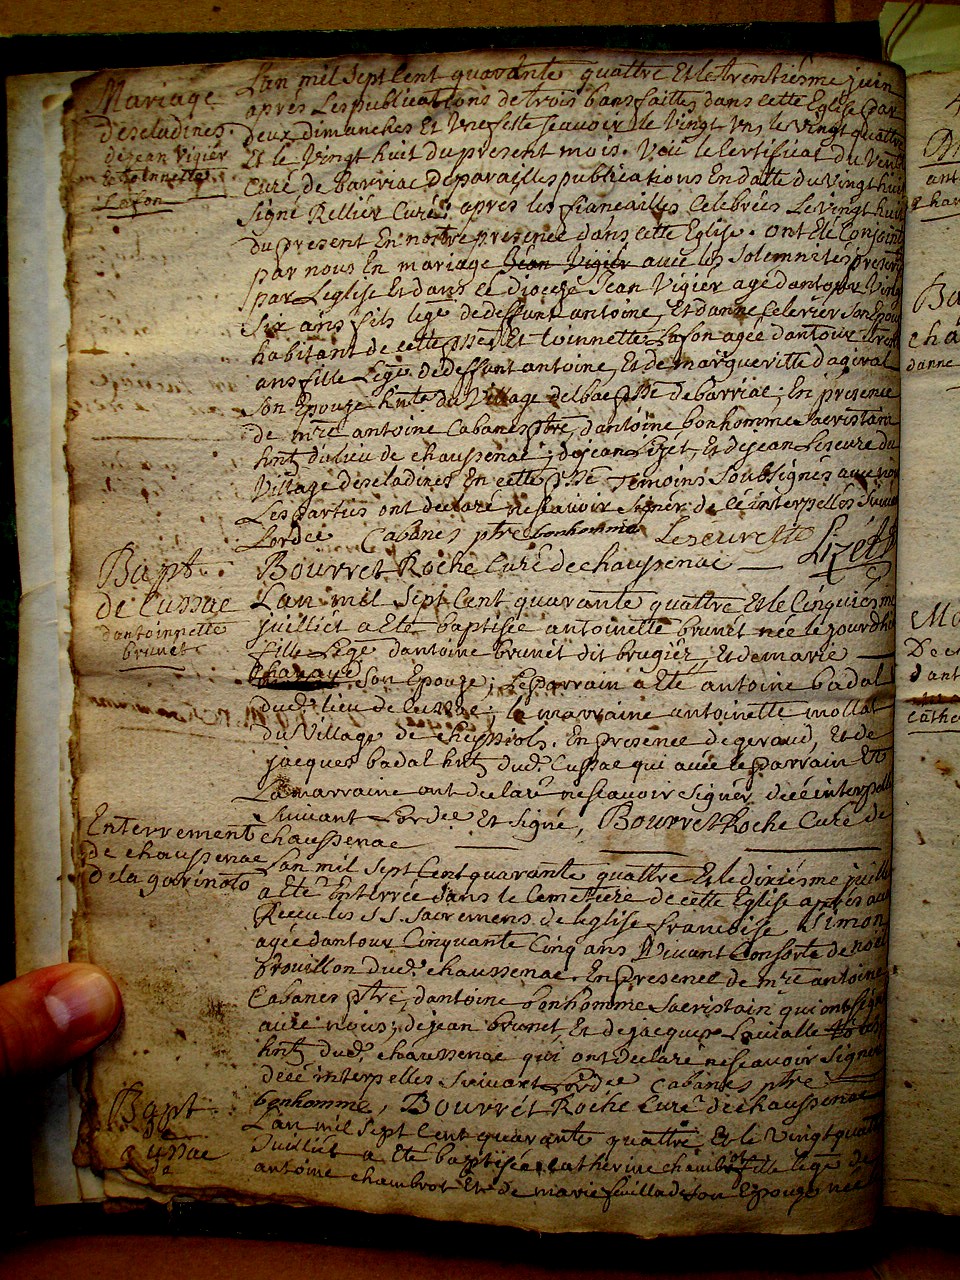 Mariage
Deseladines
de jean Vigier
et toinnette
Lafon
L'an mil sept Cent quarante quattre Et le trentiesme juin
apres Les publications de trois bans faittes dans cette Eglise par
deux dimanches Et Une feste sçeavoir le Vingt un le Vingt quattre
Et le Vingt huit du present mois. Veu le Certificat du
Curé de Barriac de pareilles publications En datte du Vingt huit
Signé Rellier Curé; apres les fiancailles Celebrées Le Vingt huit
du present En nostre presence dans cette Eglise. ont Eté Conjoint
par nous En mariage Jean Vigier avec les Solemnités
par L'eglise Et dans ce Diocese Jean Vigier agé dantour Vingt
Six ans fils legе de deffunt antoine, Et danne Celerier Son Epouze
habitant de cette psse Et toinnette Lafon agée dantour
ans fille Lege de deffunt antoine, Et de margueritte dagival
Son Epouze hnte du Village delbac psse de barriac; En presence
de mre antoine Cabanes ptre, dantoine bonhomme Sacristain
hnts du lieu de chaussenac; de jean Lizet, Et de jean Leseure du
Village deseladines En cette psse temoins Soubsignés avec nous
Les parties ont declaré ne sçeavoir Signer de ce interpellés Suivant
Lordce Cabanes ptre bonhomme Leseure Lizet
Bourret Roche Curé de chaussenac
Bapt.
de Cussac
dantoinnette
brunet
L'an mil Sept Cent quarante quattre Et le Cinquiesme
juilliet a Eté baptisée antoinette brunet née le jourdhui
fille Lege dantoine brunet dit brugier, Et de marie
Chavaud Son Epouze; Le parrain a Eté antoine badal
dud. lieu de Cussac; la marraine antoinette mollat
du Village de cheyssiols. En presence de geraud, Et de
jacques badal hnts dud. Cussac qui avec le parrain Et
La marraine ont declaré ne sçeavoir Signer de ce interpellés
Suivant Lordce Et Signé, Bourret Roche Curé de
chaussenac
Enterrement
de chaussenac
de la
L'an mil sept Cent quarante quattre Et le dixiesme juille
a Eté Enterrée dans le Cemetiere de cette Eglise apres avoir
Receu les SS. Sacremens de l'eglise francoise Simon
agée dantour Cinquante Cinq ans Vivant Consorte de noel
brouillon dud. chaussenac. En presence de mre antoine
Cabanes ptre, dantoine bonhomme Sacristain qui ont signé
avec nous, de jean brunet, Et de jacques Lavialle
hnts dud. chaussenac qui ont declaré ne sçeavoir Signer
de ce interpellés Suivant Lordce Cabanes ptre
bonhomme, Bourret Roche Curé de chaussenac
Bapt.
L'an mil Sept Cent quarante quattre Et le Vingt quatre
Juilliet a Eté baptisée Catherine chambrot fille lege de
antoine chambrot Et de marie feuillade Son Epouze née